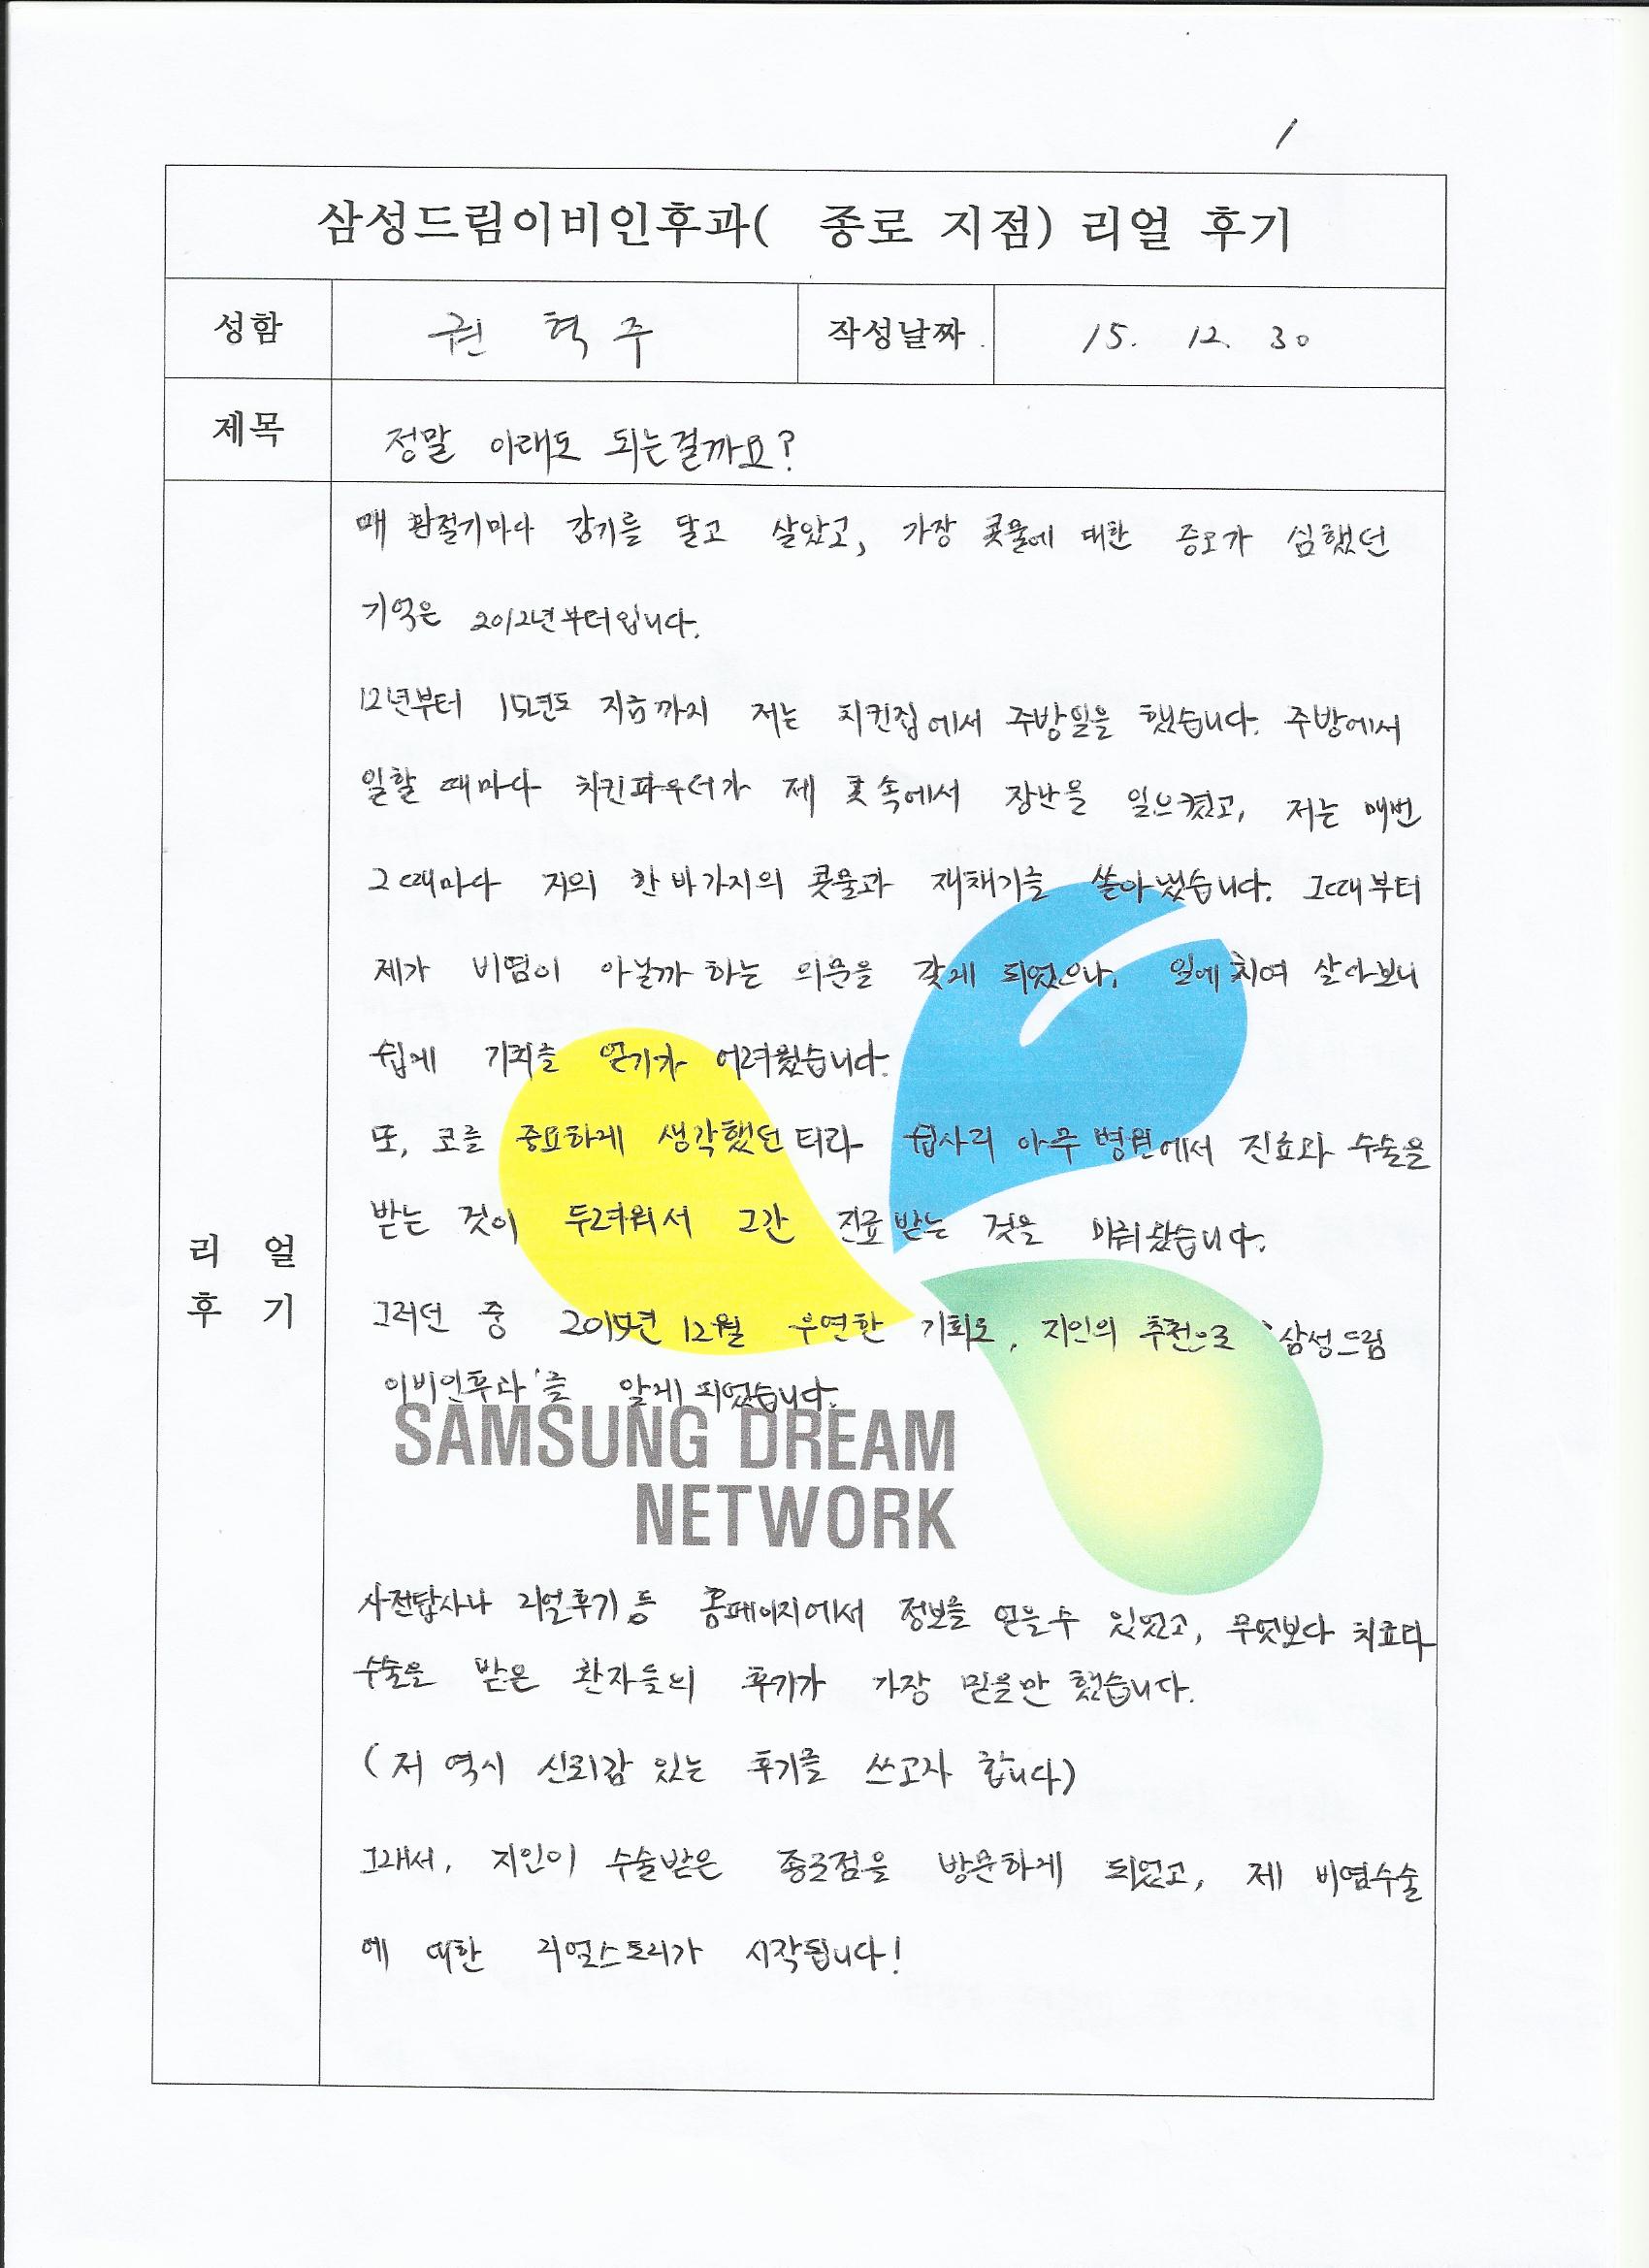 1
삼성드림이비인후과( 종로 지점) 리얼 후기
성함 권 혁 주 작성날짜 15. 12. 30
제목 정말 이래도 되는걸까요?
매 환절기마다 감기를 달고 살았고, 가장 콧물에 대한 증오가 심했던
기억은 2012년부터입니다.
12년부터 15년도 지금까지 저는 치킨집에서 주방일을 했습니다. 주방에서
일할 때마다 치킨파우더가 제 콧속에서 장난을 일으켰고, 저는 매번
그때마다 저의 한 바가지의 콧물과 재채기를 쏟아냈습니다. 그때부터
제가 비염이 아닐까 하는 의문을 갖게 되었으나, 일에 치여 살아보니
쉽게 기회를 얻기가 어려웠습니다.
또, 코를 중요하게 생각했던 터라 쉽사리 아무 병원에서 진료와 수술을
받는 것이 두려워서 그간 진료 받는 것을 미뤄왔습니다.
리 얼
후 기
그러던 중 2015년 12월 우연한 기회로, 지인의 추천으로 '삼성드림
이비인후과'를 알게 되었습니다.
SAMSUNG DREAM
NETWORK
사전답사나 리얼후기 등 홈페이지에서 정보를 얻을 수 있었고, 무엇보다 치료다
수술을 받은 환자들의 후기가 가장 믿을만 했습니다.
(저 역시 신뢰감 있는 후기를 쓰고자 합니다)
그래서, 지인이 수술받은 종로점을 방문하게 되었고, 제 비염수술
에 대한 리얼스토리가 시작됩니다!